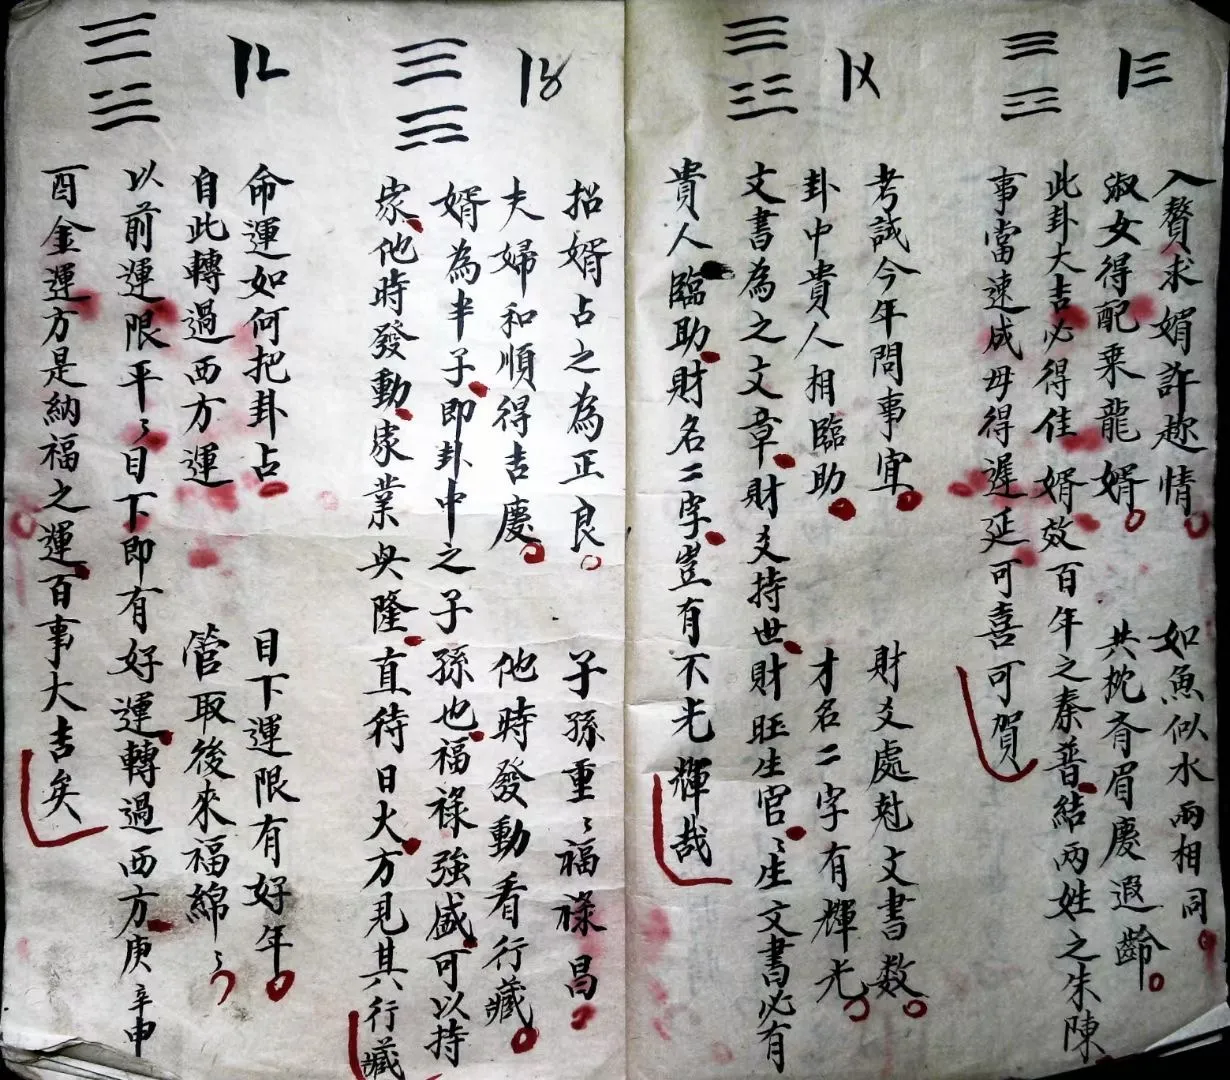 〡三
入贅求婿許趂情
如魚似水兩相同
淑女得配乘龍婿
共枕斉眉慶遐齡
此卦大吉必得佳婿效百年之秦晉結兩姓之朱陳
事當速成毋得遲延可喜可賀
〡〤
考試今年問事宜
財爻處尅文書数
卦中貴人相臨助
才名二字有輝光
文書為之文章財爻持世財旺生官〻生文書必有
貴人臨助財名二字豈有不光輝哉
〡〥
招婿占之為正良
子孫重〻福祿昌
夫婦和順得吉慶
他時發動看行藏
婿為半子即卦中之子孫也福祿強盛可以持
家他時發動家業興隆直待日火方見其行藏
〡〦
命運如何把卦占
目下運限有好年
自此轉過西方運
管取後來福綿〻
以前運限平〻目下即有好運轉過西方庚辛申
酉金運方是納福之運百事大吉矣